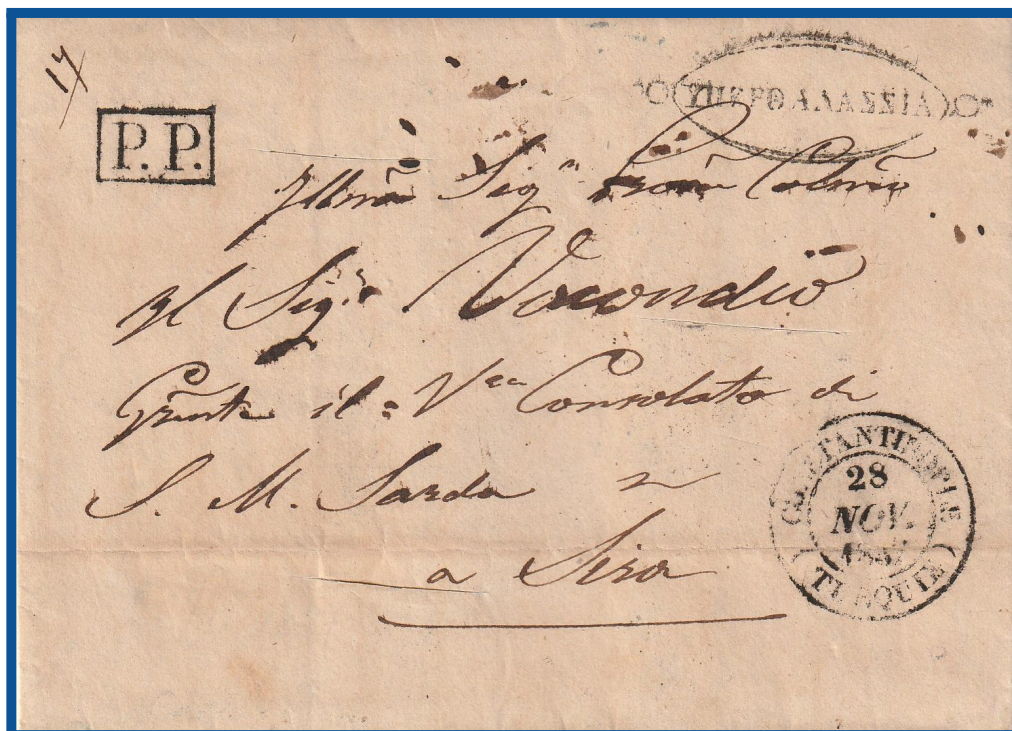 17
P. P.
ΥΠΕΡΘΑΛΑΣΣΙΑ
Sig.
Al Sig.r Vacondio
Gerente il Vce Consolato di
S. M. Sarda
a Sira
CONSTANTINOPLE
28
NOV.
(TURQUIE)